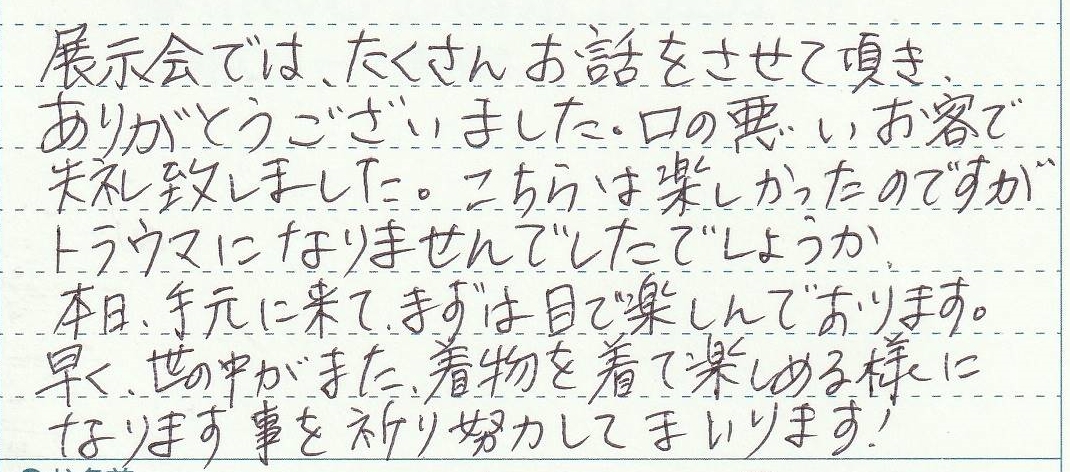 展示会では、たくさんお話をさせて頂き、
ありがとうございました。口の悪いお客で
失礼致しました。こちらは楽しかったのですが
トラウマになりませんでしたでしょうか、
本日、手元に来て、まずは目で楽しんでおります。
早く、世の中がまた、着物を着て楽しめる様に
なります事を祈り努力してまいります!